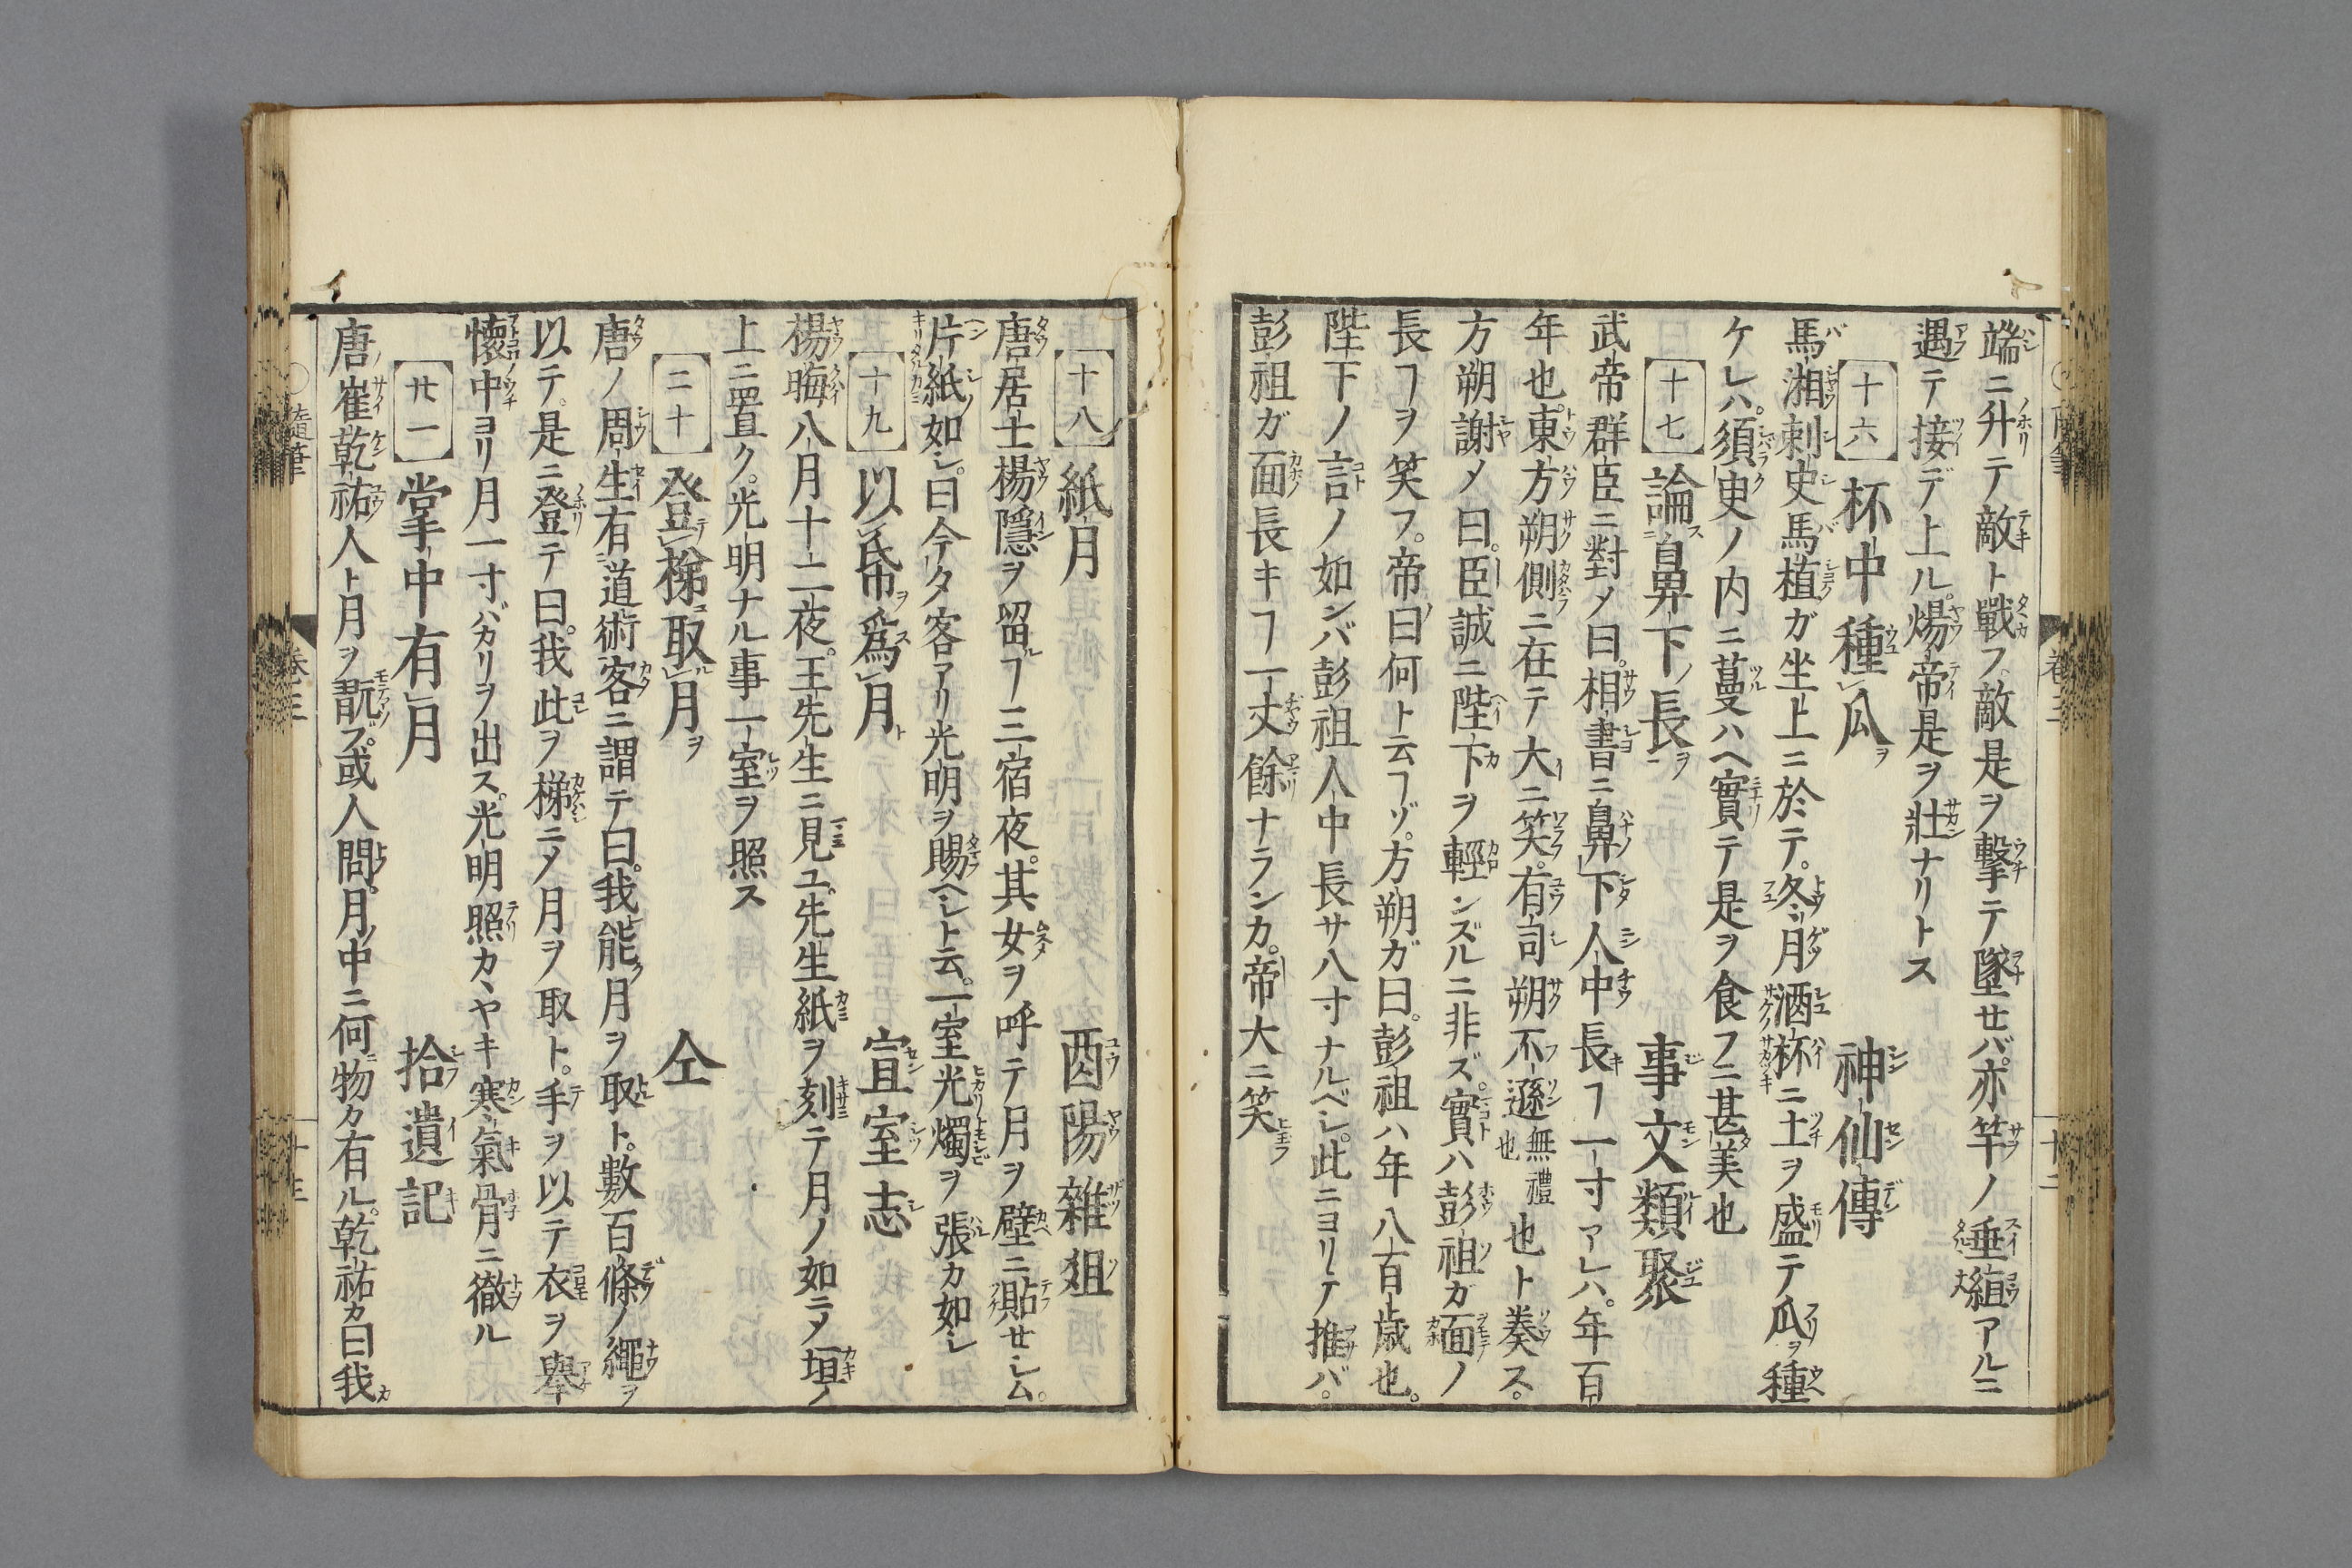 端ニ升テ敵ト戰フ敵是ヲ擊テ墜セバ。亦竿ノ垂縆アルニ
遇テ接デ上ル。煬帝是ヲ壯ナリトス
十六 杯中種瓜ヲ 神仙傳
馬湘刺史馬植ガ坐上ニ於テ。冬月酒杯ニ土ヲ盛テ瓜ヲ種
ケレハ。須史ノ内ニ蔓ハヘ實テ是ヲ食フニ甚美也
十七 論鼻下ノ長ヲ 事文類聚
武帝群臣ニ對メ曰。相書ニ鼻下人中長キヿ一寸アレハ。年百
年也。東方朔側ニ在テ大ニ笑。有司朔不遜無禮也也ト奏ス。
方朔謝メ曰。臣誠ニ陛下ヲ輕ンズルニ非ズ。實ハ彭祖カ面ノ
長ヿヲ笑フ。帝曰何ト云ヿゾ。方朔ガ曰。彭祖ハ年八百歳也。
陛下ノ言ノ如ンバ彭祖人中長サ八寸ナルベシ。此ニヨリテ推バ。
彭祖ガ面長キヿ一丈餘ナランカ。帝大ニ笑
十八 紙月 酉陽雜俎
唐居士楊隱ヲ留ルヿ三宿夜。其女ヲ呼テ月ヲ壁ニ貼セシム。
片紙如シ。曰今夕客アリ光明ヲ賜ヘシト云。一室光燭ヲ張カ如シ
十九 以帋ヲ爲月ト 宣室志
楊晦八月十二夜。王先生ニ見ユ。先生紙ヲ刻テ月ノ如ニメ垣ノ
上ニ置ク。光明ナル事一室ヲ照ス
二十 登梯取月ヲ 仝
唐ノ周生有道術客ニ謂テ曰。我能月ヲ取ト。數百條ノ繩ヲ
以テ。是ニ登テ曰。我此ヲ梯ニメ月ヲ取ト。手ヲ以テ衣ヲ擧
懷中ヨリ月一寸バカリヲ出ス。光明照カヽヤキ寒氣骨ニ徹ル
廿一 掌中有月 拾遺記
唐ノ崔乾祐人ト月ヲ翫フ。或人問。月中ニ何物カ有ル。乾祐カ曰我
隨筆
卷三
十三
卷三
十二